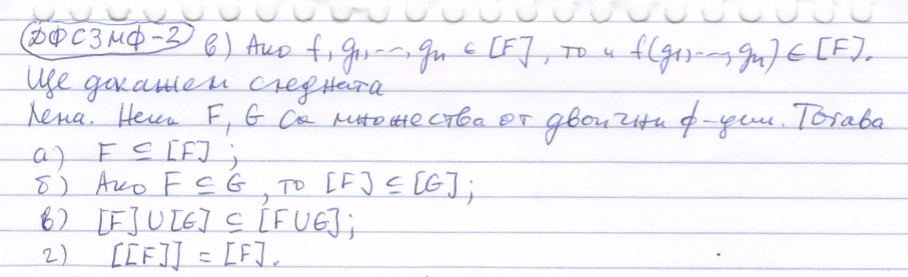 ДФСЗМФ-2 в) Ако f, g₁, --, gₙ ∈ [F], то и f(g₁, --, gₙ) ∈ [F].
Ще докажем следната
Лема. Нека F, G са множества от двоични ф-ции. Тогава
а) F ⊆ [F];
б) Ако F ⊆ G, то [F] ⊆ [G];
в) [F] ∪ [G] ⊆ [F ∪ G];
г) [[F]] = [F].